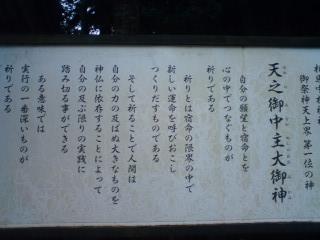 御祭神天上界第一位の神
天之御中主大御神
自分の願望と宿命とを
心の中でつなぐものが
祈りである
祈りとは宿命の限界の中で
新しい運命を呼びおこし
つくりだすものである
そして祈ることで人間は
自分の力の及ばぬ大きなものを
神仏に依存することによって
自分の及ぶ限りの実践に
踏み切る事ができる
ある意味では
実行の一番深いものが
祈りである